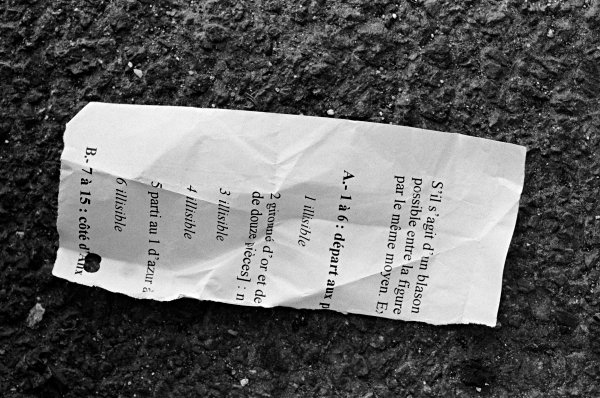 S'il s'agit d'un blason
possible entre la figure
par le même moyen. E
A.- 1 à 6 : départ aux p
1 illisible
2 gironné d'or et de
de douze pièces] : n
3 illisible
4 illisible
5 parti au 1 d'azur à
6 illisible
B.- 7 à 15 : côté d'Aux